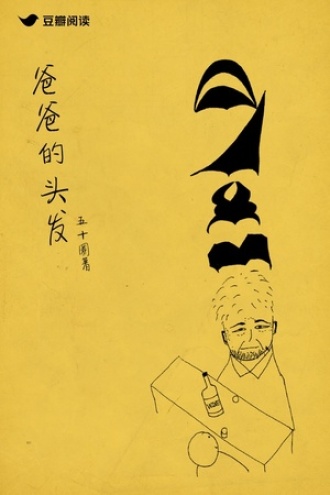 豆瓣阅读
爸爸的头发
五十圆著